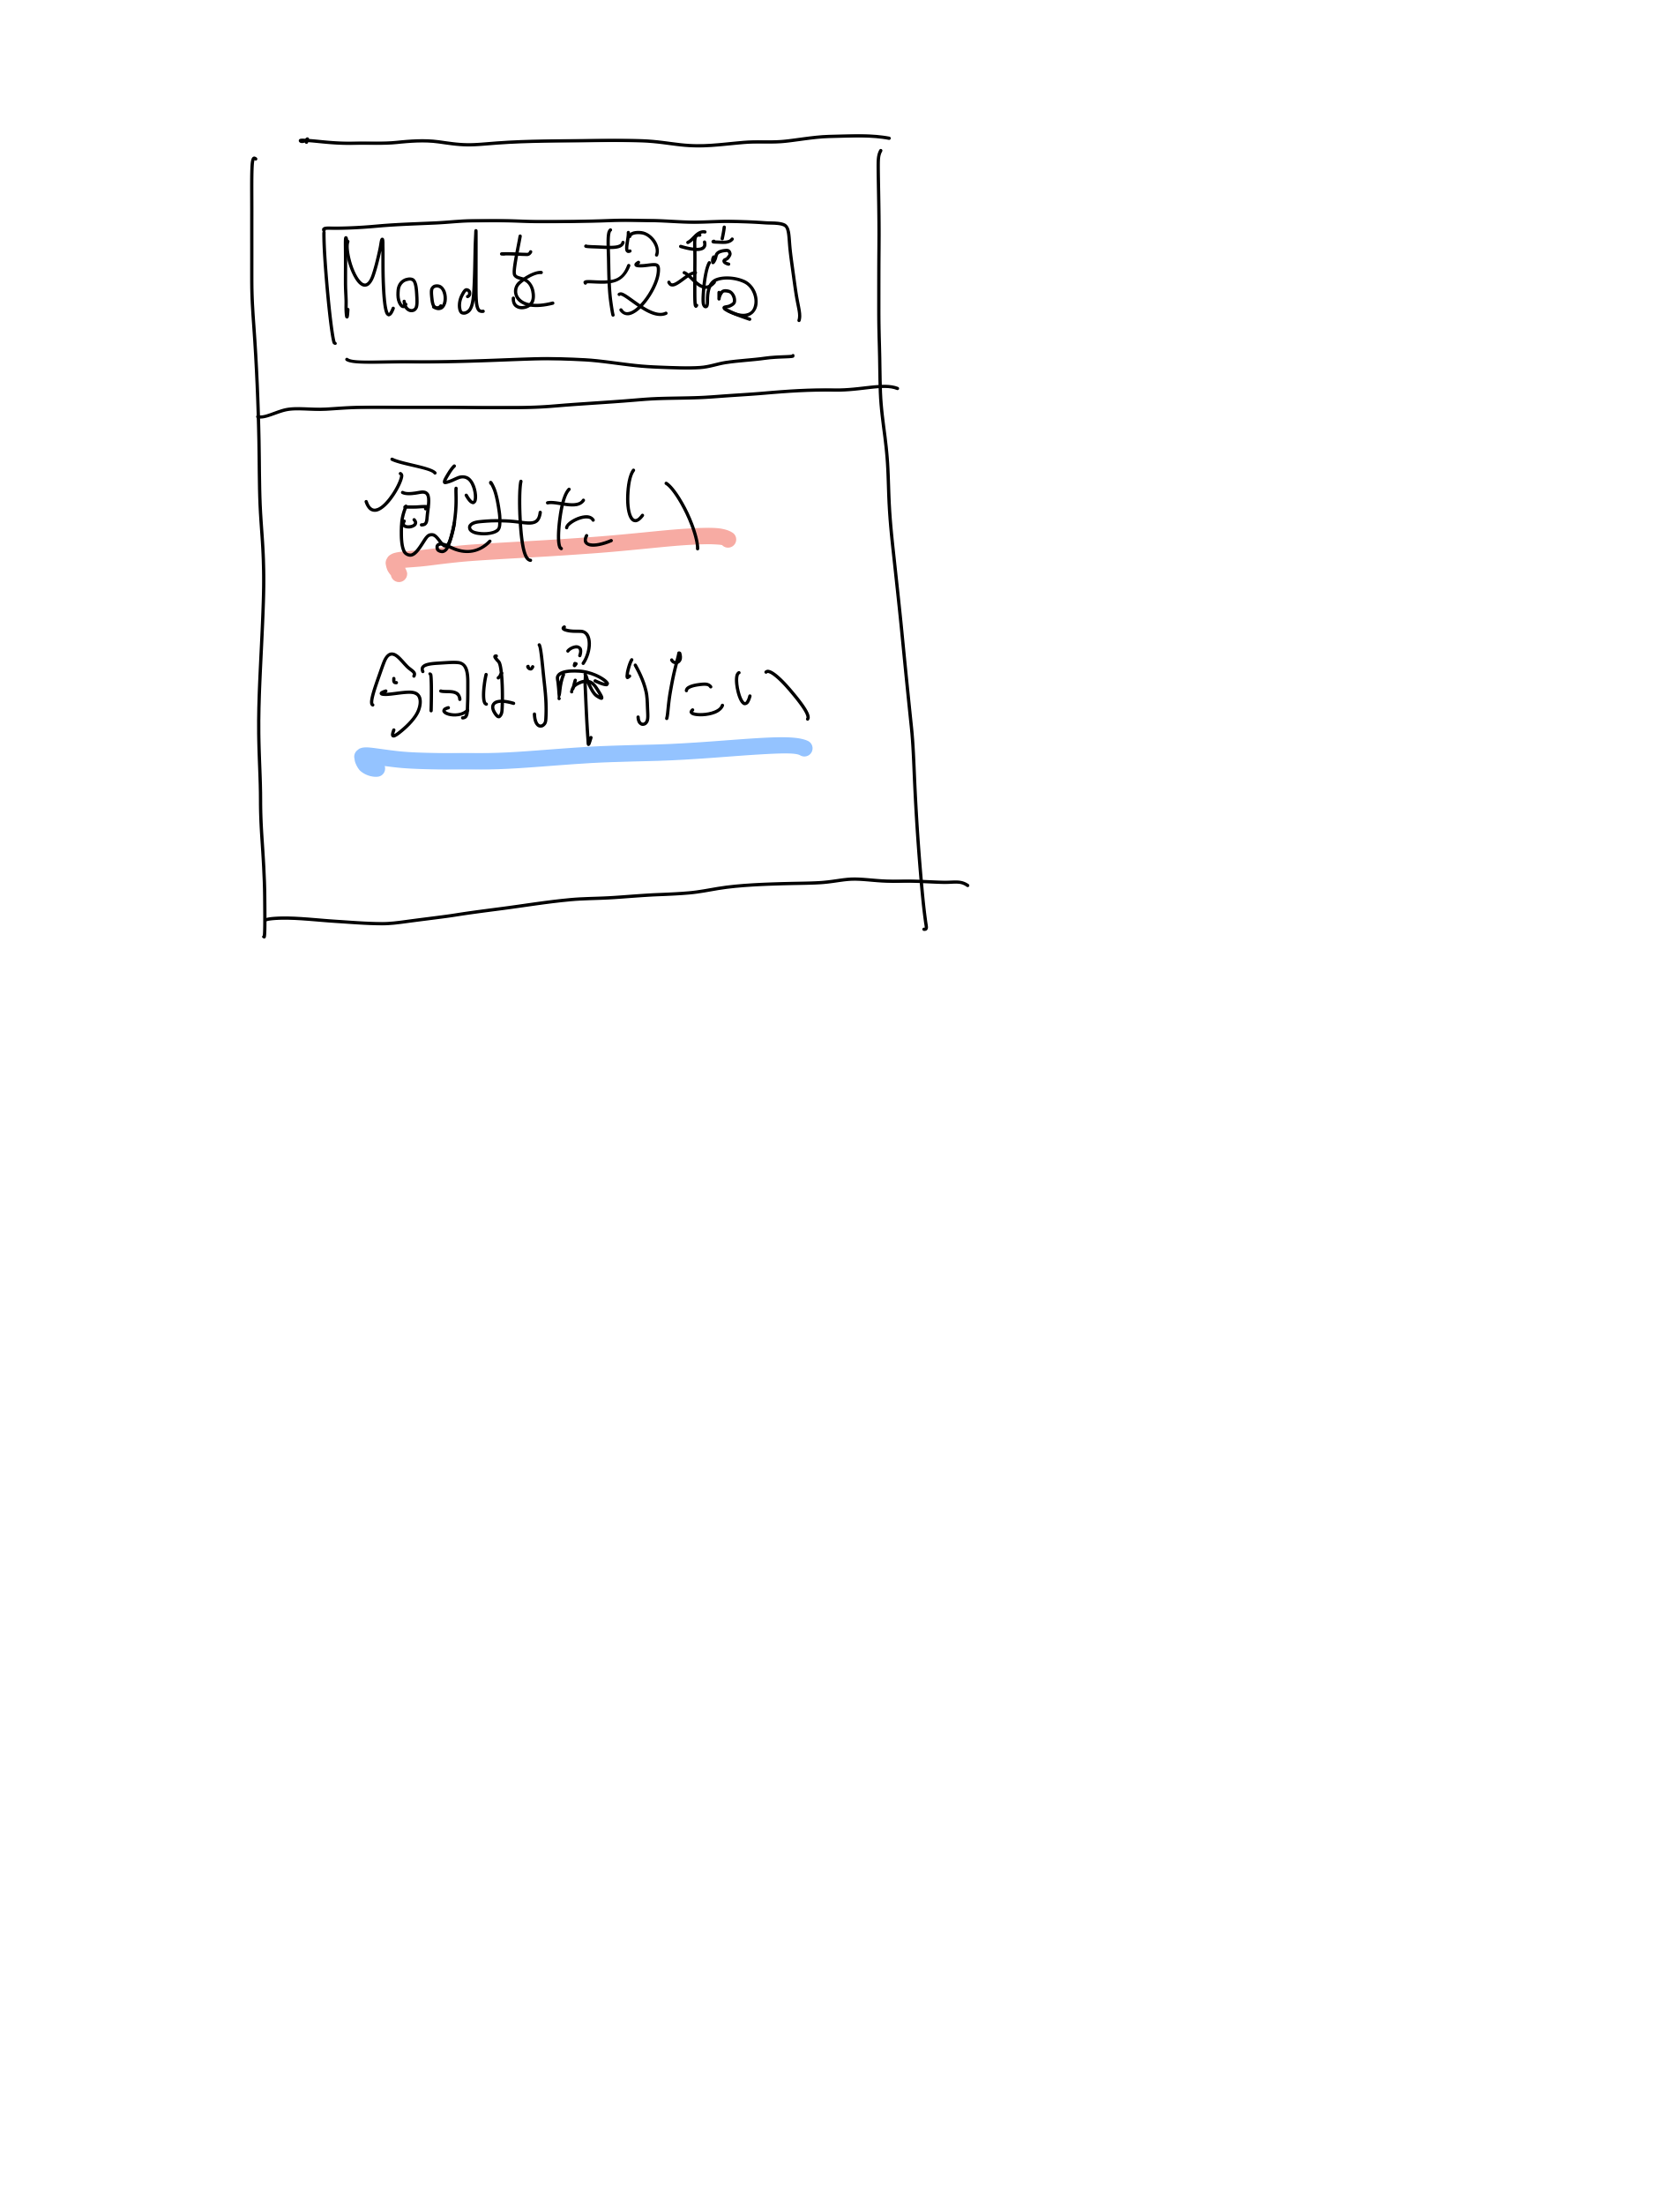 Moodを投稿
飲みたい
今日は帰りたい